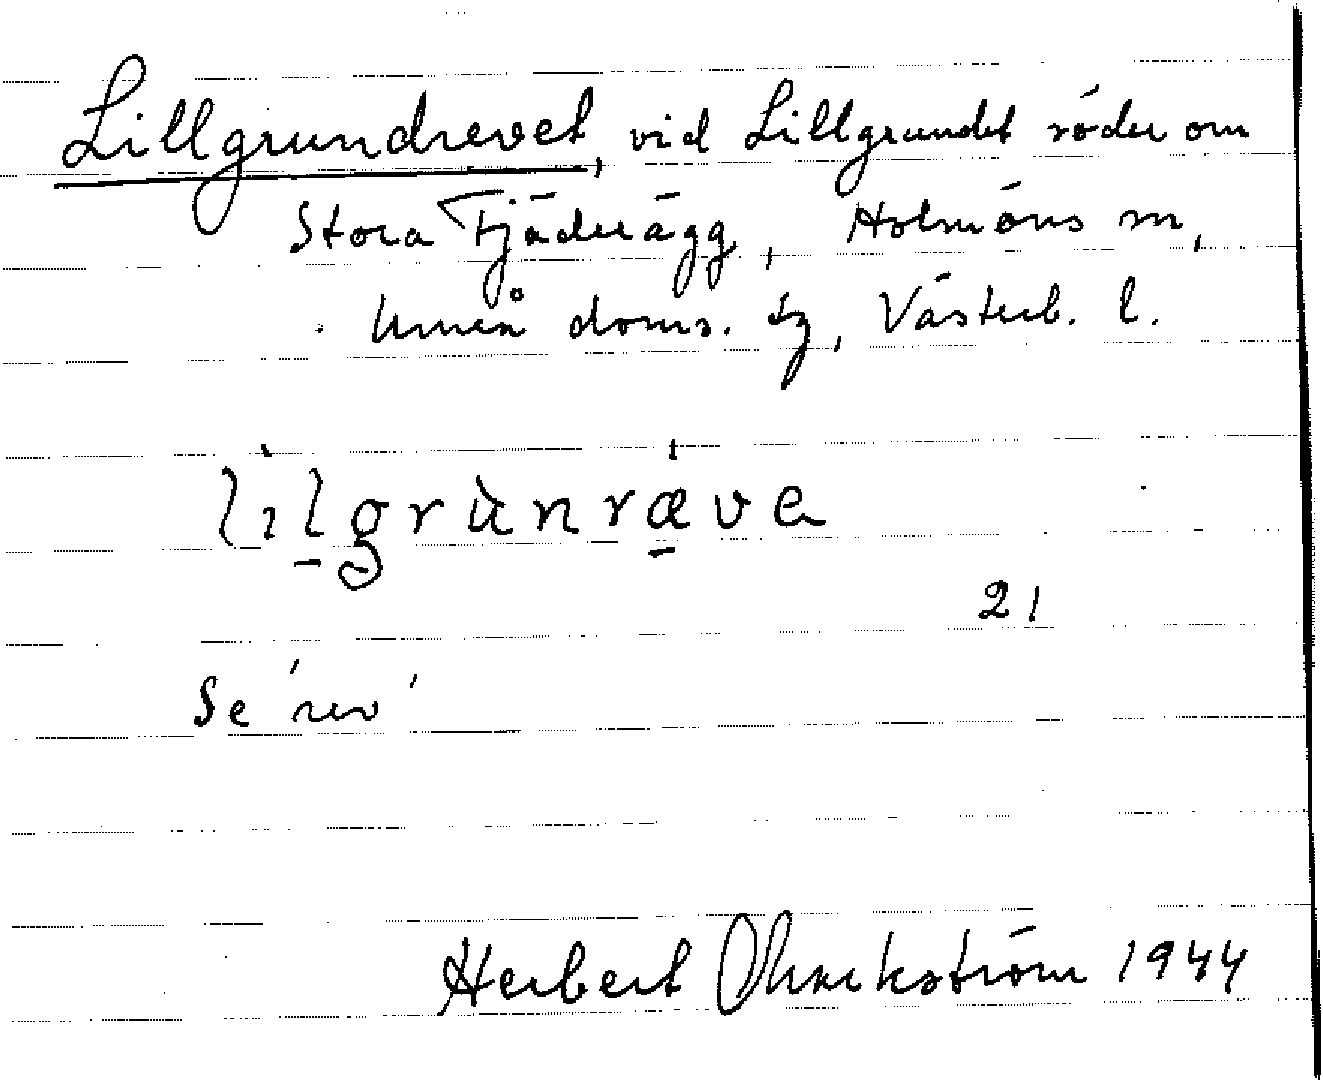 Lillgrundrevet, vid Lillgrundet söder om
Stora Fjäderägg, Holmöns sn,
Umeå doms. tg, Västerb. l.
lìlgrùnræva
21
Se 'rev'
Herbert Ohrnkström 1944